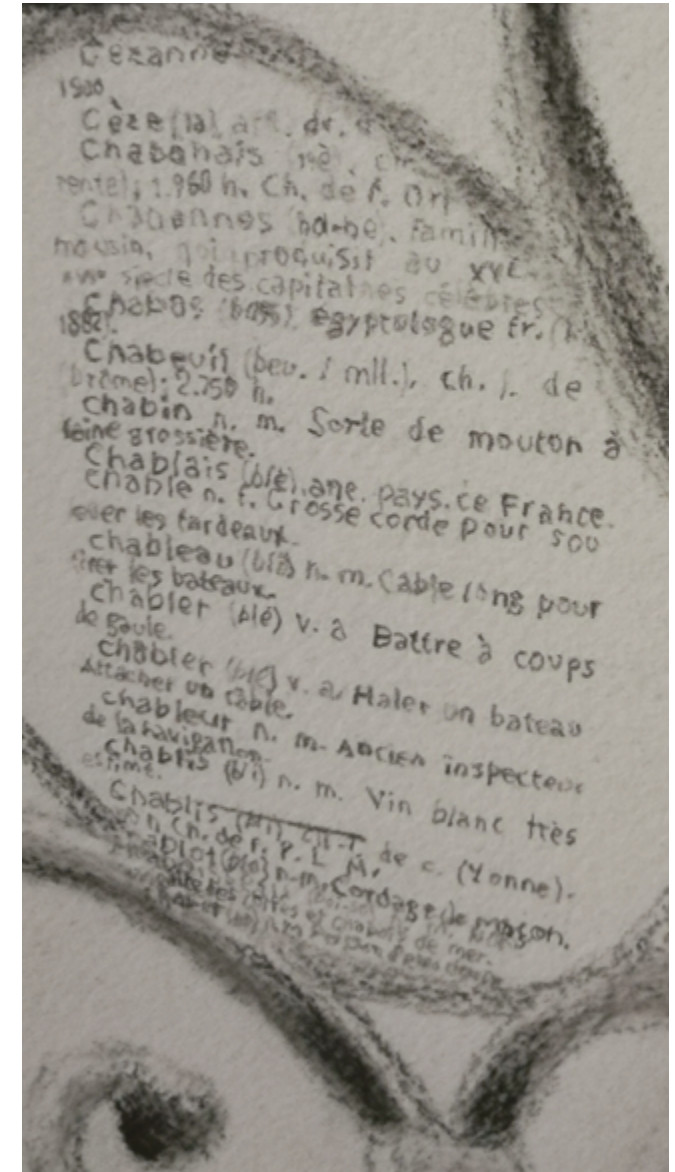 Cézanne
1900
Cèze (la), aff. dr. d
Chabanais (nè), ch
rente); 1.960 h. Ch. de f. Orl
Chabannes (ba-ne). Famill
mousin, qui produisit au XVe
siècle des capitaines célèbres
Chabas (bass) égyptologue fr.
1882).
Chabeuil (beu, l mll.), ch. j. de
Drôme); 2.750 h.
chabin n. m. Sorte de mouton à
laine grossière.
Chablais (blè), anc. pays. de France.
chable n. f. Grosse corde pour sou
ever les fardeaux.
chableau (blô) n. m. Cable long pour
tirer les bateaux.
chabler (blé) v. a Battre à coups
de gaule.
chabler (blé) v. a. Haler un bateau
Attacher un câble.
chableur n. m. Ancien inspecteur
de la navigation.
chablis (bli) n. m. Vin blanc très
estimé.
Chablis (bli), ch.-l. de c. (Yonne).
Ch. de f. P. L. M.
chablot (blo) n. m. Cordage de maçon.
de mer.